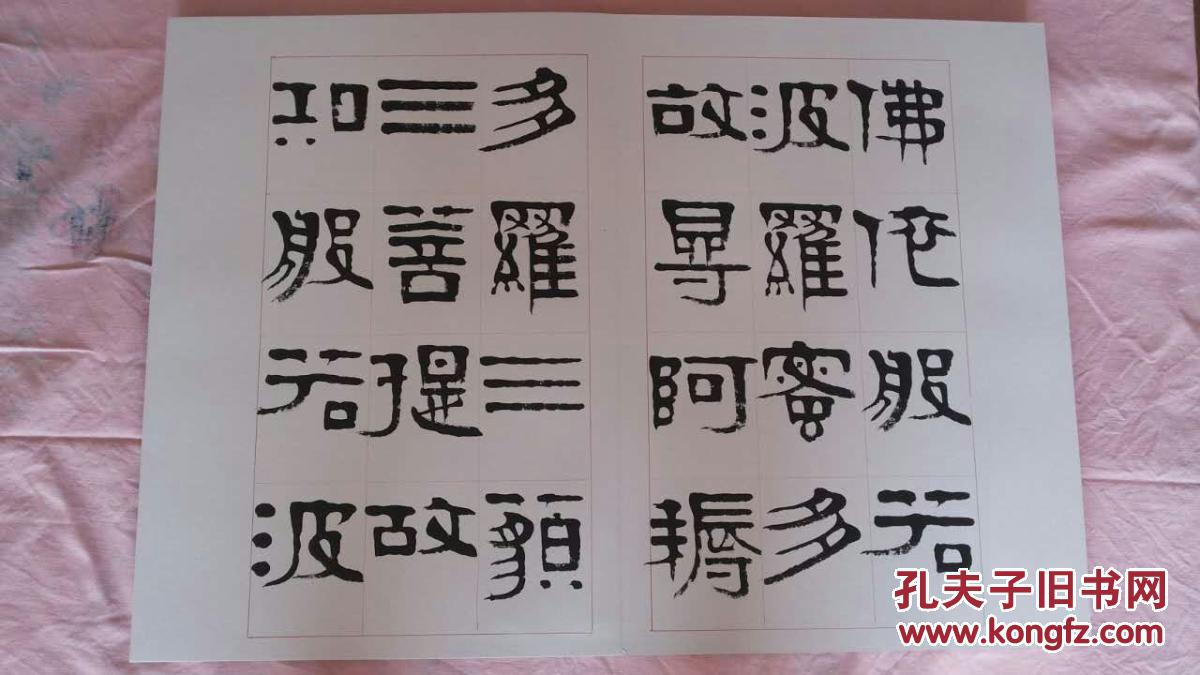 佛依般若
波羅蜜多
故得阿耨
多羅三藐
三菩提故
知般若波
孔夫子旧书网
www.kongfz.com